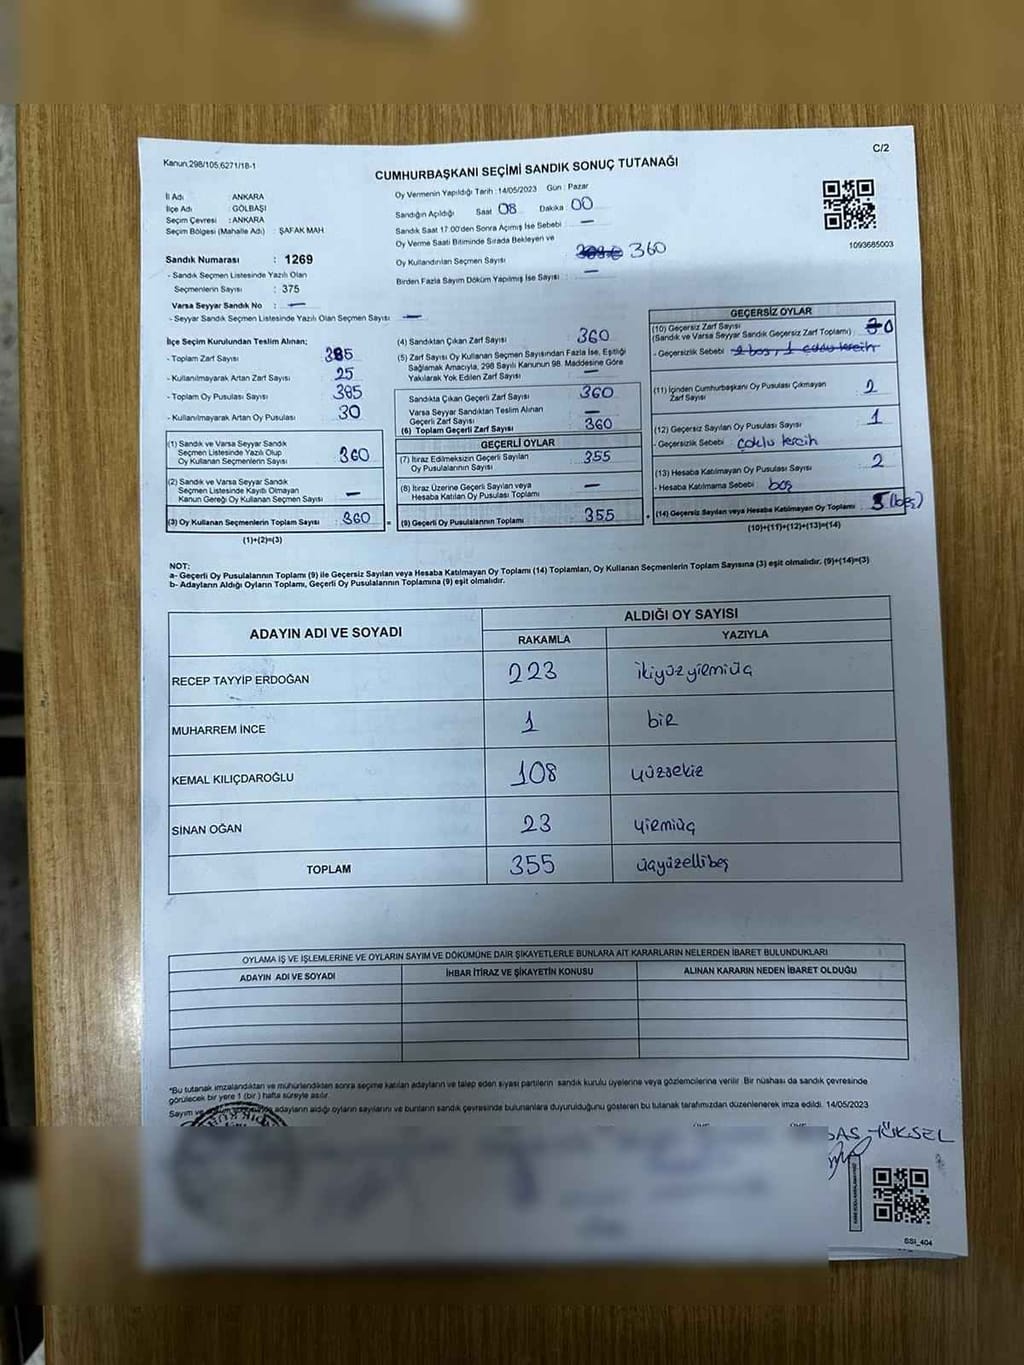 Kanun.298/105,6271/18-1
C/2
CUMHURBAŞKANI SEÇİMİ SANDIK SONUÇ TUTANAĞI
İl Adı : ANKARA
İlçe Adı : GÖLBAŞI
Seçim Çevresi : ANKARA
Seçim Bölgesi (Mahalle Adı) : ŞAFAK MAH
Sandık Numarası : 1269
- Sandık Seçmen Listesinde Yazılı Olan
Seçmenlerin Sayısı : 375
Varsa Seyyar Sandık No : —
- Seyyar Sandık Seçmen Listesinde Yazılı Olan Seçmen Sayısı : —
Oy Vermenin Yapıldığı Tarih : 14/05/2023 Gün : Pazar
Sandığın Açıldığı Saat 08 Dakika : 00
Sandık Saat 17.00'den Sonra Açılmış İse Sebebi : —
Oy Verme Saati Bitiminde Sırada Bekleyen ve
Oy Kullandırılan Seçmen Sayısı : 360
Birden Fazla Sayım Döküm Yapılmış İse Sayısı : —
1093685003
İlçe Seçim Kurulundan Teslim Alınan;
- Toplam Zarf Sayısı 385
- Kullanılmayarak Artan Zarf Sayısı 25
- Toplam Oy Pusulası Sayısı 385
- Kullanılmayarak Artan Oy Pusulası 30
(1) Sandık ve Varsa Seyyar Sandık
Seçmen Listesinde Yazılı Olup
Oy Kullanan Seçmenlerin Sayısı 360
(2) Sandık ve Varsa Seyyar Sandık
Seçmen Listesinde Kayıtlı Olmayan
Kanun Gereği Oy Kullanan Seçmen Sayısı —
(3) Oy Kullanan Seçmenlerin Toplam Sayısı 360
(1)+(2)=(3)
(4) Sandıktan Çıkan Zarf Sayısı 360
(5) Zarf Sayısı Oy Kullanan Seçmen Sayısından Fazla İse, Eşitliği
Sağlamak Amacıyla, 298 Sayılı Kanunun 98. Maddesine Göre
Yakılarak Yok Edilen Zarf Sayısı —
Sandıkta Çıkan Geçerli Zarf Sayısı 360
Varsa Seyyar Sandıktan Teslim Alınan
Geçerli Zarf Sayısı —
(6) Toplam Geçerli Zarf Sayısı 360
GEÇERLİ OYLAR
(7) İtiraz Edilmeksizin Geçerli Sayılan
Oy Pusulalarının Sayısı 355
(8) İtiraz Üzerine Geçerli Sayılan veya
Hesaba Katılan Oy Pusulası Toplamı —
(9) Geçerli Oy Pusulalarının Toplamı 355
GEÇERSİZ OYLAR
(10) Geçersiz Zarf Sayısı
(Sandık ve Varsa Seyyar Sandık Geçersiz Zarf Toplamı) 0
- Geçersizlik Sebebi 2 boş, 1 çoklu tercih
(11) İçinden Cumhurbaşkanı Oy Pusulası Çıkmayan
Zarf Sayısı 2
(12) Geçersiz Sayılan Oy Pusulası Sayısı 1
- Geçersizlik Sebebi : çoklu tercih
(13) Hesaba Katılmayan Oy Pusulası Sayısı 2
- Hesaba Katılmama Sebebi : boş
(14) Geçersiz Sayılan veya Hesaba Katılmayan Oy Toplamı 5 (beş)
(10)+(11)+(12)+(13)=(14)
NOT:
a- Geçerli Oy Pusulalarının Toplamı (9) ile Geçersiz Sayılan veya Hesaba Katılmayan Oy Toplamı (14) Toplamları, Oy Kullanan Seçmenlerin Toplam Sayısına (3) eşit olmalıdır. (9)+(14)=(3)
b- Adayların Aldığı Oyların Toplamı, Geçerli Oy Pusulalarının Toplamına (9) eşit olmalıdır.
ADAYIN ADI VE SOYADI
ALDIĞI OY SAYISI
RAKAMLA YAZIYLA
RECEP TAYYİP ERDOĞAN 223 ikiyüzyirmiüç
MUHARREM İNCE 1 bir
KEMAL KILIÇDAROĞLU 108 yüzsekiz
SİNAN OĞAN 23 yirmiüç
TOPLAM 355 üçyüzellibeş
OYLAMA İŞ VE İŞLEMLERİNE VE OYLARIN SAYIM VE DÖKÜMÜNE DAİR ŞİKAYETLERLE BUNLARA AİT KARARLARIN NELERDEN İBARET BULUNDUKLARI
ADAYIN ADI VE SOYADI İHBAR İTİRAZ VE ŞİKAYETİN KONUSU ALINAN KARARIN NEDEN İBARET OLDUĞU
*Bu tutanak imzalandıktan ve mühürlendikten sonra seçime katılan adayların ve talep eden siyasi partilerin sandık kurulu üyelerine veya gözlemcilerine verilir. Bir nüshası da sandık çevresinde
görülecek bir yere 1 (bir) hafta süreyle asılır.
Sayım ve adayların aldığı oyların sayılarını ve bunların sandık çevresinde bulunanlara duyurulduğunu gösteren bu tutanak tarafımızdan düzenlenerek imza edildi. 14/05/2023
YÜKSEL
SSİ_404